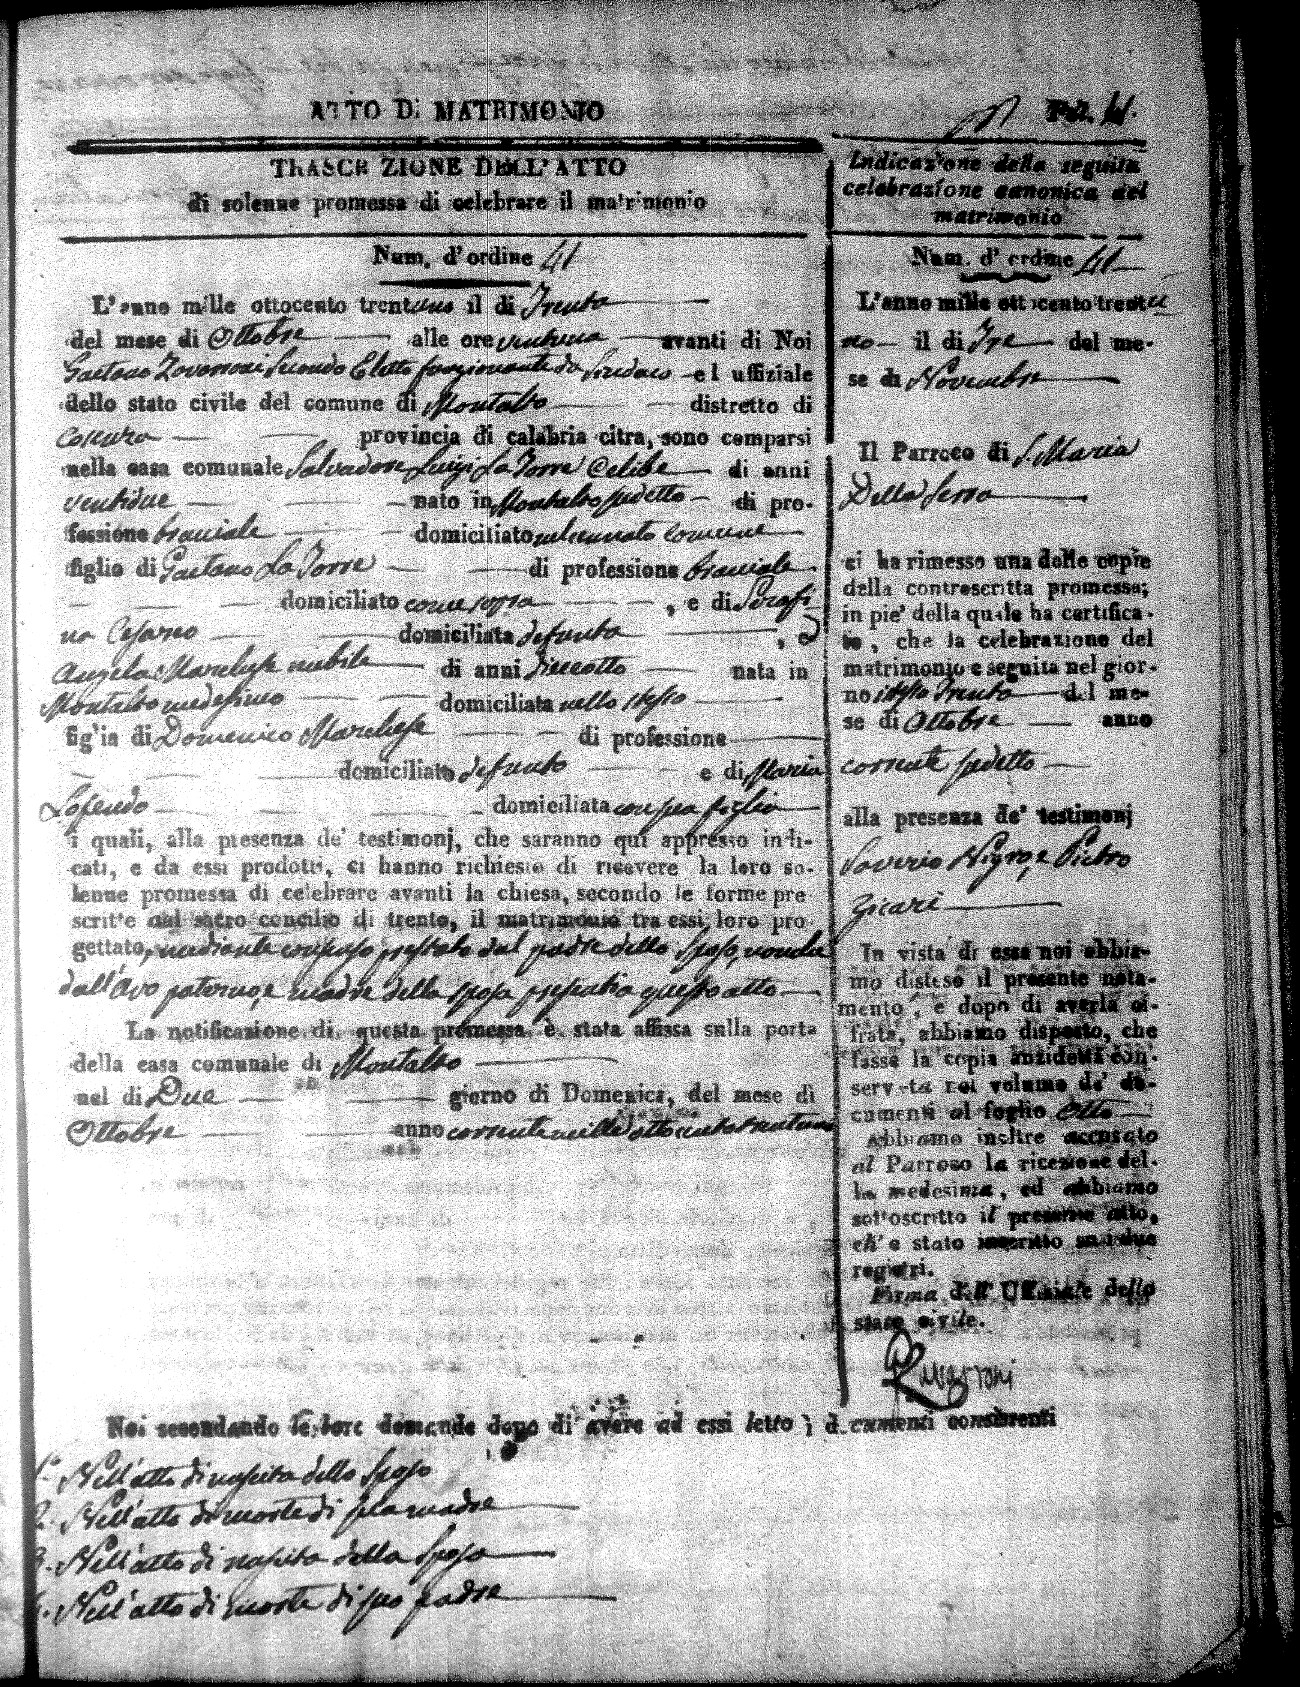 ATTO Di MATRIMONIO
TRASCRIZIONE DELL'ATTO
di solenne promessa di celebrare il matrimonio
Num. d'ordine 41
L'anno mille ottocento trentuno il di Trenta
del mese di Ottobre alle ore avanti di Noi
Gaetano Secondo Eletto funzionante da Sindaco ed uffiziale
dello stato civile del comune di Montalto distretto di
Cosenza provincia di calabria citra, sono comparsi
nella casa comunale Salvadore Luigi La Torre Celibe di anni
ventidue nato in Montalto sudetto di pro-
fessione bracciale domiciliato comune
figlio di Gaetano La Torre di professione bracciale
domiciliato come sopra , e di Serafi
na domiciliata defunta , e
Angela Marchese nubile di anni dieciotto nata in
Montalto medesimo domiciliata nello stesso
figlia di Domenico Marchese di professione
domiciliato defunto e di Maria
Lofendo domiciliata con sua figlia
i quali, alla presenza de' testimonj, che saranno qui appresso indi-
cati, e da essi prodotti, ci hanno richiesto di ricevere la loro so-
lenne promessa di celebrare avanti la chiesa, secondo le forme pre
scritte dal sacro concilio di trento, il matrimonio tra essi loro pro
gettato, mediante consenso prestato dal padre dello sposo, nonche
dall'Avo paterno, e madre della sposa quest'atto
La notificazione di questa promessa è stata affissa sulla porta
della casa comunale di Montalto
nel di Due giorno di Domenica, del mese di
Ottobre anno corrente mille ottocento trentuno
Noi secondando le loro domande dopo di avere ad essi letto i documenti consistenti
1. Nell'atto di nascita dello sposo
2. Nell'atto di morte di sua madre
3. Nell'atto di nascita della sposa
4. Nell'atto di morte di suo padre
Indicazione della seguita
celebrazione canonica del
matrimonio
Num. d' ordine 41
L'anno mille ottocento trentu
no il di Tre del me-
se di Novembre
Il Parroco di S. Maria
Della Serra
ci ha rimesso una delle copie
della controscritta promessa;
in pie' della quale ha certifica-
to, che la celebrazione del
matrimonio e seguita nel gior-
no istesso Trenta del me-
se di Ottobre anno
corrente sudetto
alla presenza de' testimonj
Saverio Nigro, e Pietro
Zicari
In vista di essa noi abbia-
mo disteso il presente nota-
mento, e dopo di averla ci-
frata, abbiamo disposto, che
fasse la copia anzidetta con-
servata nel volume de' do-
cumenti al foglio Otto
Abbiamo inoltre accusato
al Parroco la ricezione del-
la medesima, ed abbiamo
sottoscritto il presente atto,
ch' e stato inscritto su i due
registri.
Firma dell' Uffiziale dello
stato civile.